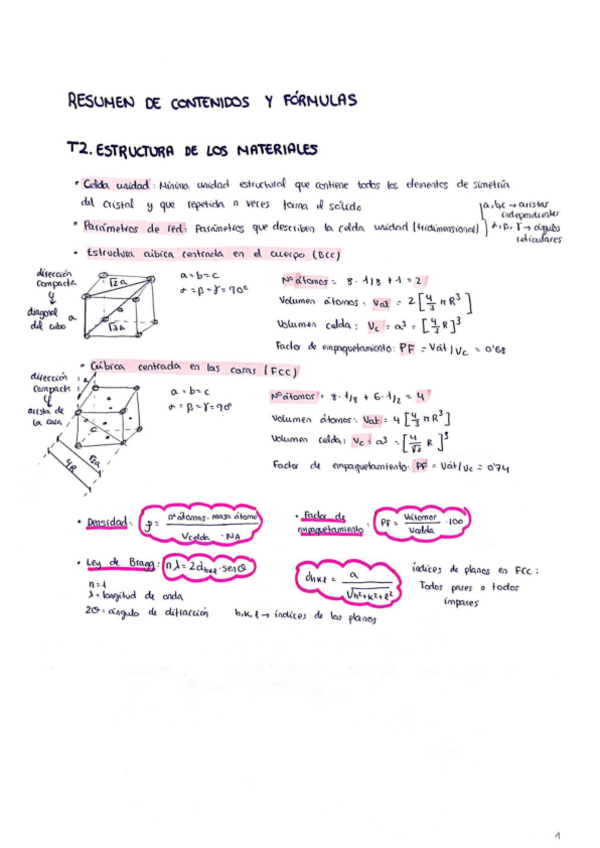 RESUMEN DE CONTENIDOS Y FÓRMULAS
T2. ESTRUCTURA DE LOS MATERIALES
• Celda unidad: Mínima unidad estructural que contiene todos los elementos de simetría
del cristal y que repetida n veces forma el sólido
• Parámetros de red: Parámetros que describen la celda unidad (tridimensional)
a, b, c → aristas independientes
α, β, γ → ángulos reticulares
• Estructura cúbica centrada en el cuerpo (BCC)
dirección compacta
diagonal del cubo
√2a
√3a
a
a=b=c
α=β=γ=90°
Nº átomos = 8·1/8 + 1 = 2
Volumen átomos: Vat = 2[4/3 π R³]
Volumen celda: Vc = a³ = [4/√3 R]³
Factor de empaquetamiento: PF = Vat/Vc = 0'68
• Cúbica centrada en las caras (FCC)
dirección compacta
arista de la cara
4R
√2a
a=b=c
α=β=γ=90°
Nº átomos = 8·1/8 + 6·1/2 = 4
Volumen átomos: Vat = 4[4/3 π R³]
Volumen celda: Vc = a³ = [4/√2 R]³
Factor de empaquetamiento: PF = Vat/Vc = 0'74
• Densidad: ρ = nº átomos · masa átomo / Vcelda · NA
• Factor de empaquetamiento: PF = Vátomos / Vcelda · 100
• Ley de Bragg: nλ = 2dhkl · senθ
dhkl = a / √h²+k²+l²
índices de planos en FCC:
Todos pares o todos
impares
n=1
λ= longitud de onda
2θ= ángulo de difracción
h,k,l → índices de los planos
1